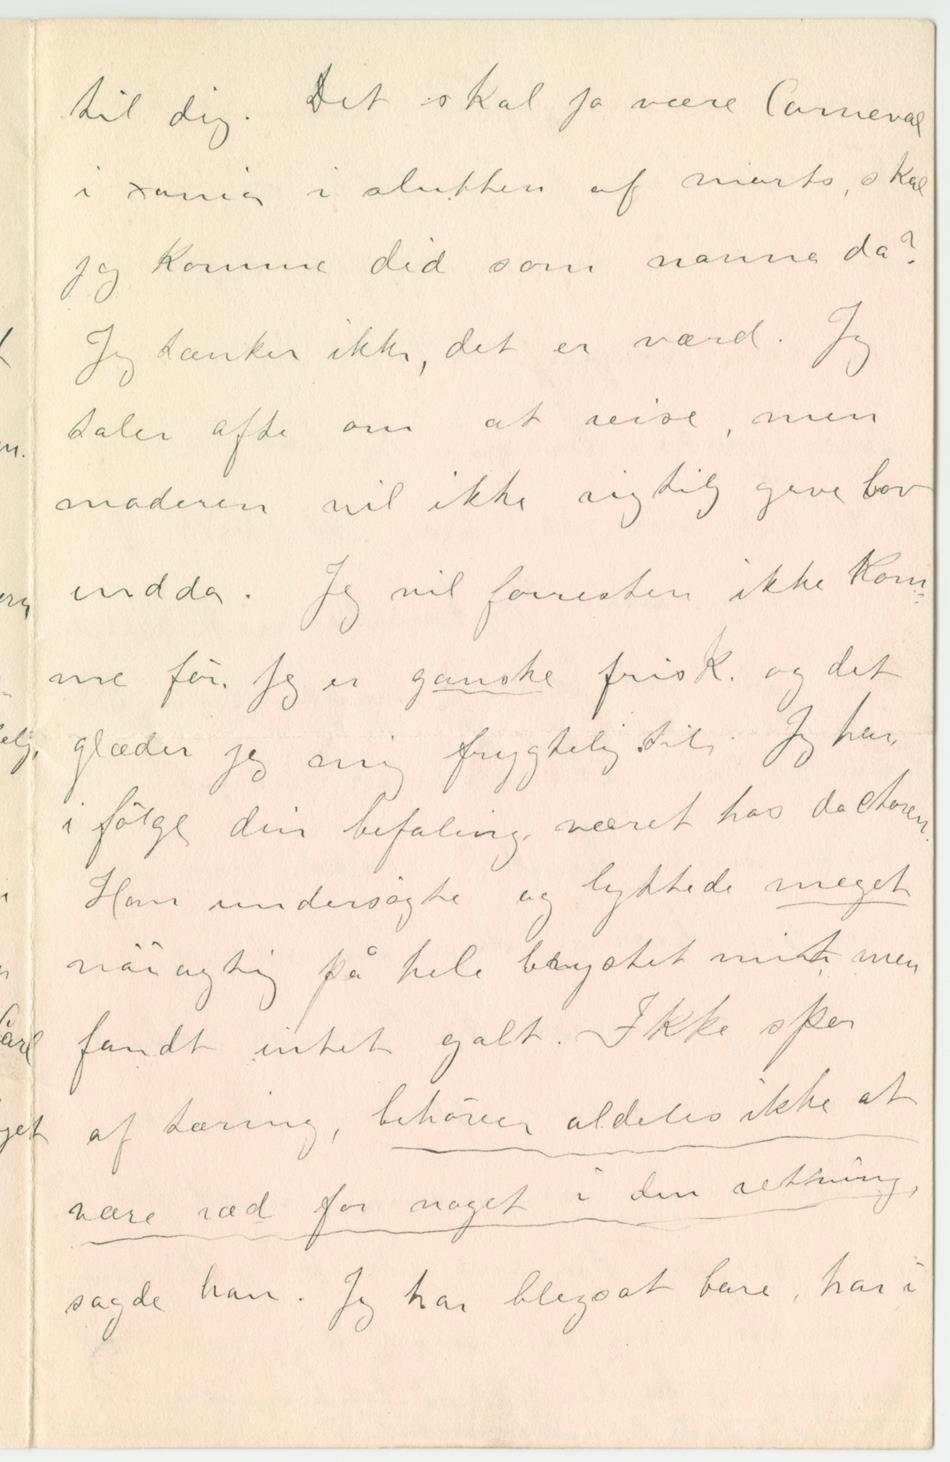 til dig. Det skal jo være Carneval
i xania i slutten af marts, skal
jeg komme did som nonne da?
Jeg tænker ikke, det er værd. Jeg
taler ofte om at reise, men
moderen vil ikke rigtig give lov
endda. Jeg vil forresten ikke kom-
me før jeg er ganske frisk. og det
glæder jeg mig frygtelig til. Jeg har,
i følge din befaling, været hos doctoren.
Han undersøgte og lyttede meget
nöiagtig på hele brystet mit, men
fandt intet galt. Ikke spor
af tæring, behöver aldeles ikke at
være ræd for noget i den retning,
sagde han. Jeg har blegsot bare, har i